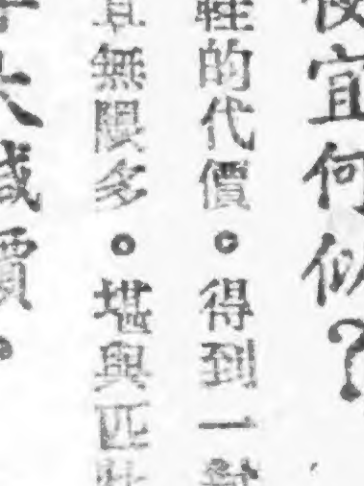 宜何似？
鞋的代價。得到一對
無限多。堪與匹
大減價。